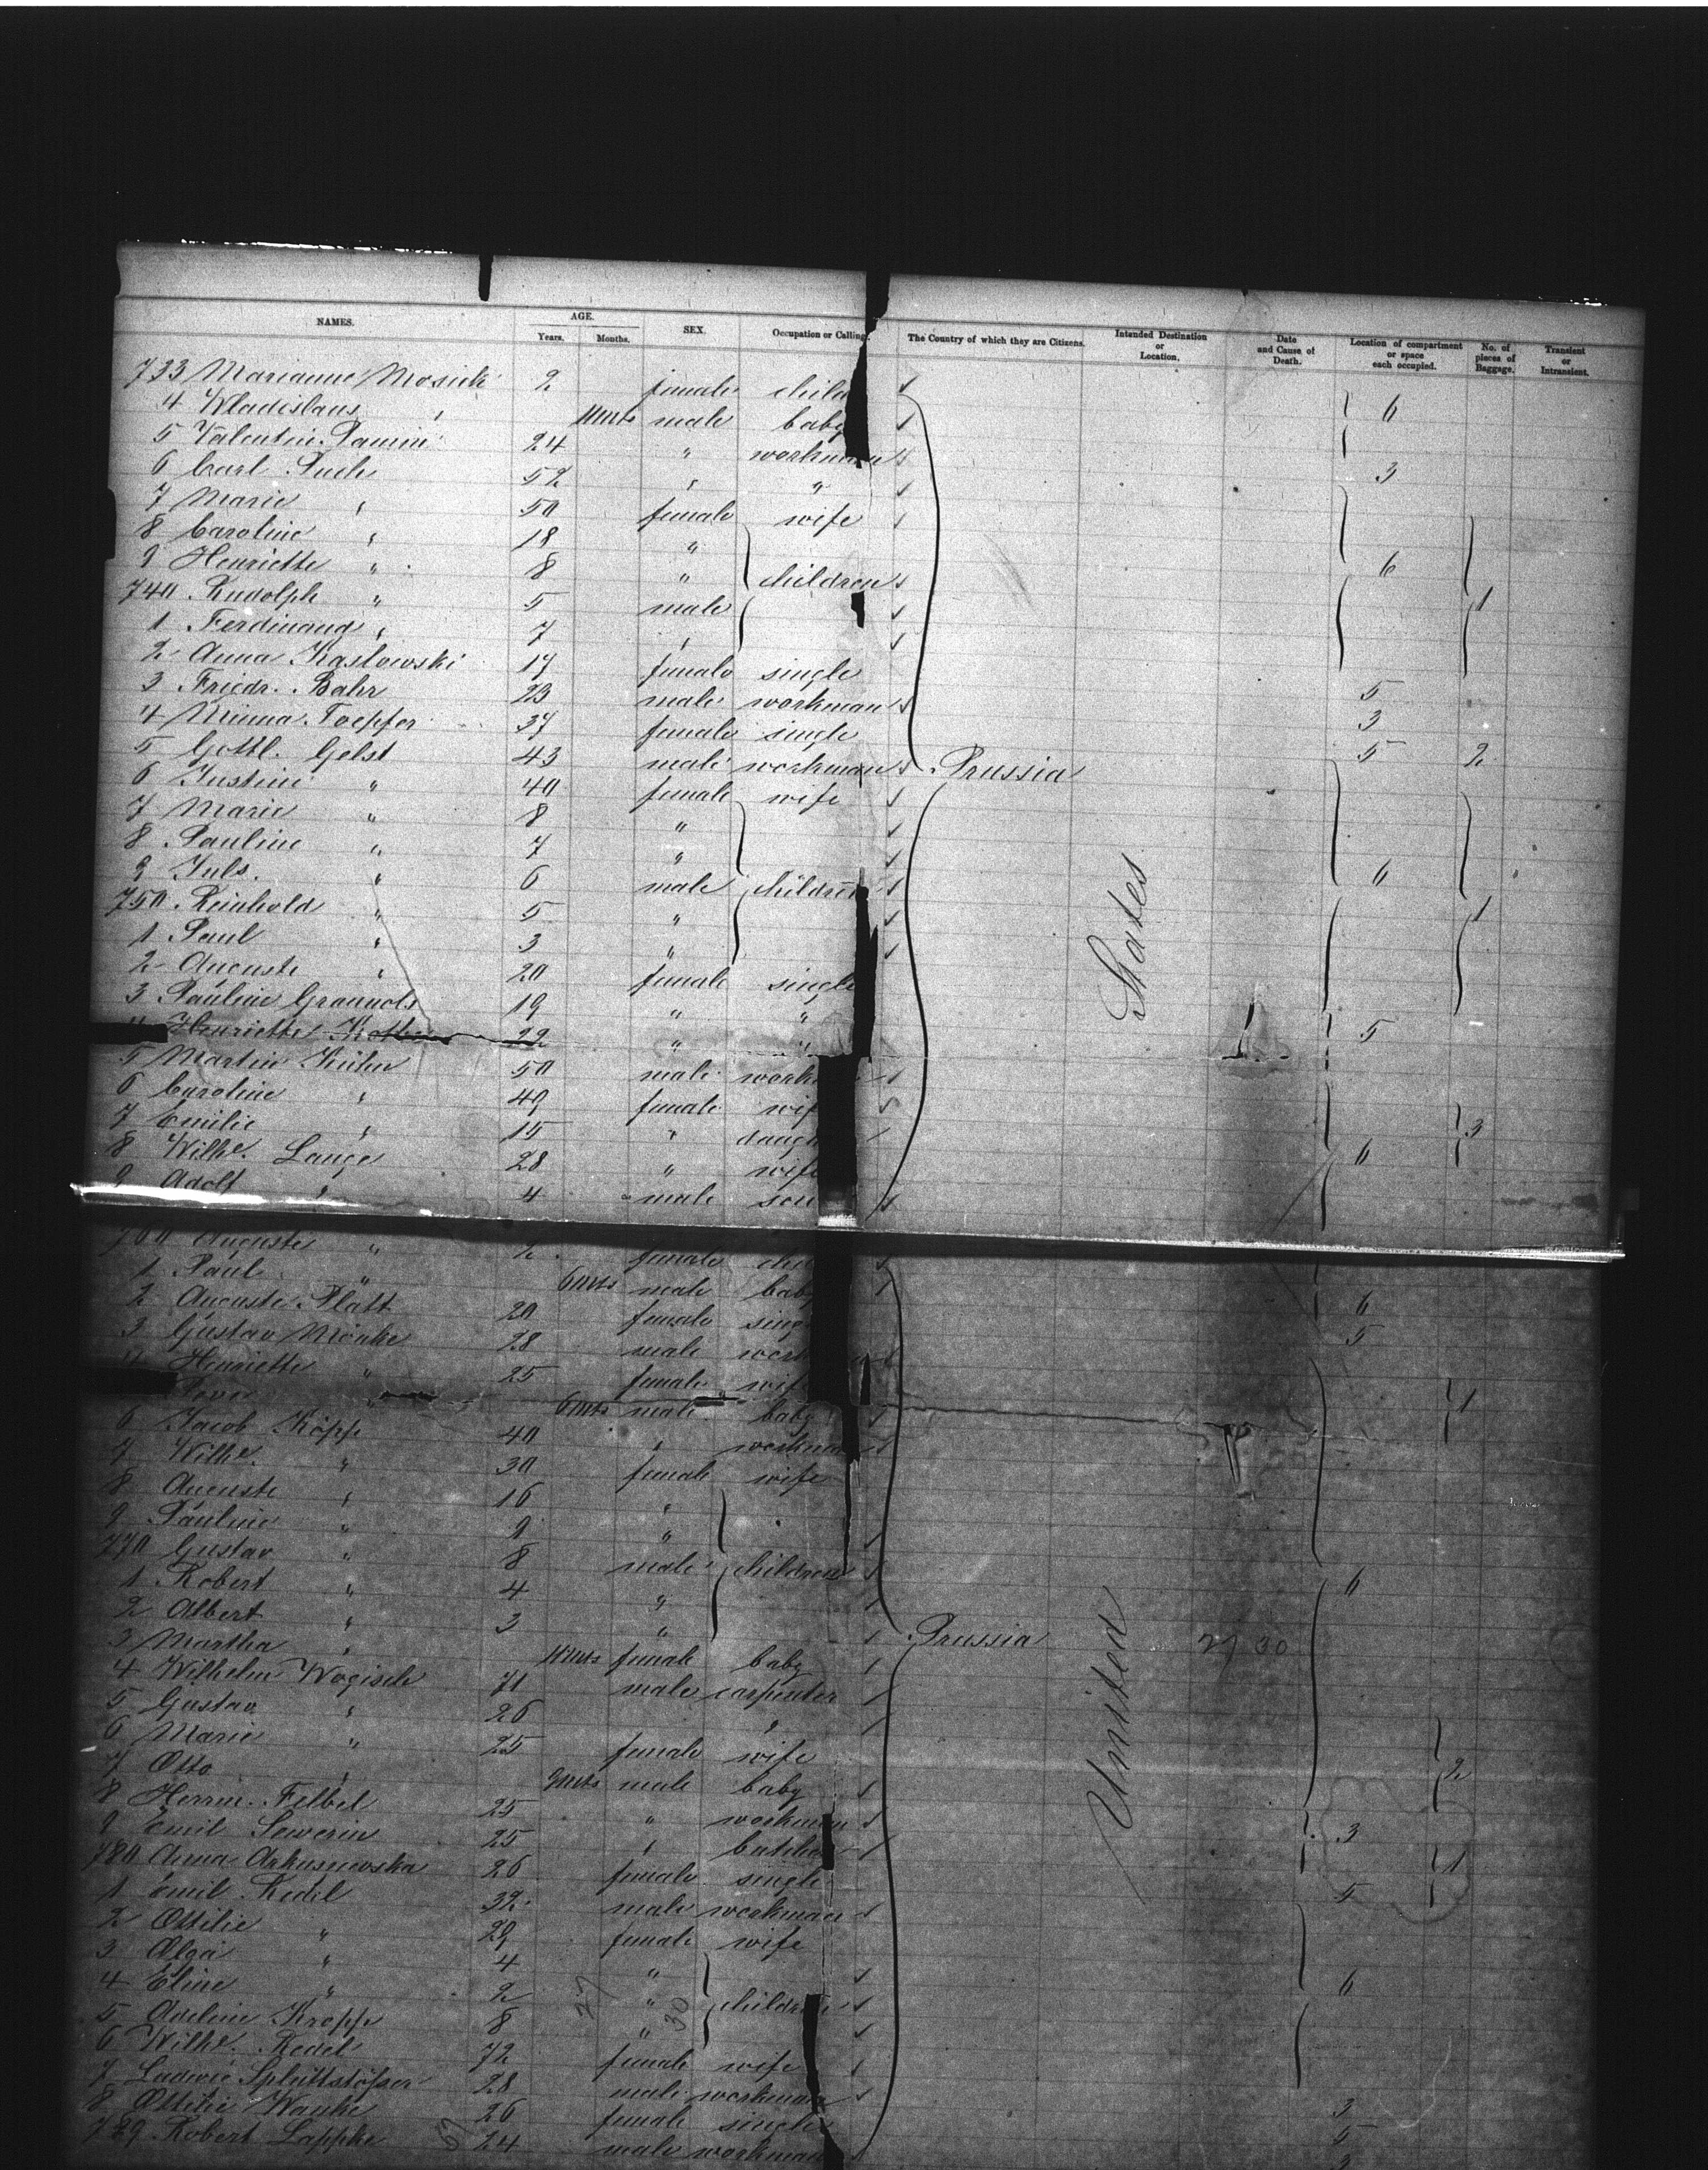 NAMES. AGE. Years. Months. SEX. Occupation or Calling. The Country of which they are Citizens. Intended Destination or Location. Date and Cause of Death. Location of compartment or space each occupied. No. of pieces of Baggage. Transient or Intransient.
733 Marianne Mosick 2 female child
4 Wladislaus " 11 Mts male baby 6
5 Valentin 24 " workman
6 Carl 52 " " 3
7 Marie " 50 female wife
8 Caroline " 18 "
9 Henriette " 8 " children 6
740 Rudolph " 5 male 1
1 Ferdinand " 7 "
2 Anna Kaslowski 17 female single
3 Friedr. Bahr 23 male workman 5
4 Minna Toepfer 37 female single 3
5 Gottl. Gelst 43 male workman Prussia 5 2
6 Justine " 40 female wife
7 Marie " 8 "
8 Pauline " 7 "
9 Juls. " 6 male children 6
750 Reinhold " 5 " 1
1 Paul " 3 "
2 Auguste " 20 female single
3 Pauline 19 " "
4 Henriette 22 " " 5
5 Martin Kühn 50 male
6 Caroline " 49 female
7 Emilie " 15 " 3
8 Wilhe. Lange 28 " wife 6
9 Adolf " 4 male son
760 Auguste " 2 female
1 Paul " 6 Mts male baby
2 Auguste Platt 20 female 6
3 Gustav Mönke 28 male 5
4 Henriette " 25 female
6 Mts male baby 1
6 Jacob Köpp 40 " workman
7 Wilhe. " 30 female wife
8 Auguste " 16 "
9 Pauline " 9 "
770 Gustav " 8 male children
1 Robert " 4 " 6
2 Albert " 3 "
3 Martha " 11 Mts female baby Prussia 27 30
4 Wilhelm Wogisch 71 male carpenter
5 Gustav " 26 "
6 Marie " 25 female wife
7 Otto " 9 Mts male baby 2
8 Herrm. Felbel 25 " workman
9 Emil Sewerin 25 " 3
780 Anna 26 female single 1
1 Emil Redel 32 male workman 5
2 Ottilie " 29 female wife
3 Olga " 4 "
4 Eline " 2 " children 6
5 Adeline Kropp 8 "
6 Wilhe. Redel 72 female wife
7 Ludwig Splittstösser 28 male workman
8 Ottilie Wanke 26 female single 3
789 Robert Lappke 24 male workman 5
3
United States
27
30